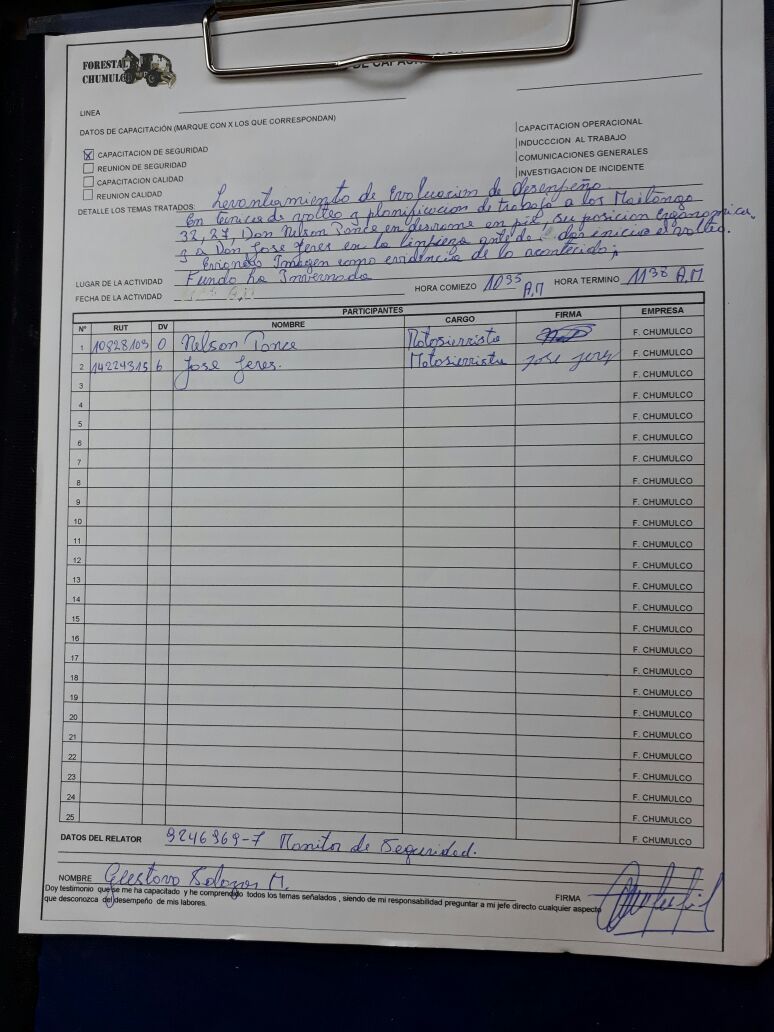 FORESTAL
CHUMULCO
DE CAPAC
LINEA
DATOS DE CAPACITACIÓN (MARQUE CON X LOS QUE CORRESPONDAN)
X CAPACITACION DE SEGURIDAD
REUNION DE SEGURIDAD
CAPACITACION CALIDAD
REUNION CALIDAD
CAPACITACION OPERACIONAL
INDUCCCION AL TRABAJO
COMUNICACIONES GENERALES
INVESTIGACION DE INCIDENTE
DETALLE LOS TEMAS TRATADOS: Levantamiento de Evaluacion de desempeño.
En tecnica de volteo y planificacion de trabajo a los
32, 27, Don Nelson Ponce en desrame en pie, su posicion Ergonomica,
y a Don Jose Jeres en la limpieza antes de dar inicio el volteo.
Imagen como evidencia de lo acontecido;
LUGAR DE LA ACTIVIDAD Fundo La Invernada
HORA COMIEZO 1035 A,M HORA TERMINO 1138 A,M
FECHA DE LA ACTIVIDAD
PARTICIPANTES
N° RUT DV NOMBRE CARGO FIRMA EMPRESA
1 10828109 0 Nelson Ponce Motosierrista F. CHUMULCO
2 14224315 6 Jose Jeres. Motosierrista Jose Jerez F. CHUMULCO
3 F. CHUMULCO
4 F. CHUMULCO
5 F. CHUMULCO
6 F. CHUMULCO
7 F. CHUMULCO
8 F. CHUMULCO
9 F. CHUMULCO
10 F. CHUMULCO
11 F. CHUMULCO
12 F. CHUMULCO
13 F. CHUMULCO
14 F. CHUMULCO
15 F. CHUMULCO
16 F. CHUMULCO
17 F. CHUMULCO
18 F. CHUMULCO
19 F. CHUMULCO
20 F. CHUMULCO
21 F. CHUMULCO
22 F. CHUMULCO
23 F. CHUMULCO
24 F. CHUMULCO
25 F. CHUMULCO
DATOS DEL RELATOR 9246969-7 Monitor de Seguridad.
NOMBRE Gustavo Salazar M. FIRMA
Doy testimonio que se me ha capacitado y he comprendido todos los temas señalados , siendo de mi responsabilidad preguntar a mi jefe directo cualquier aspecto
que desconozca del desempeño de mis labores.